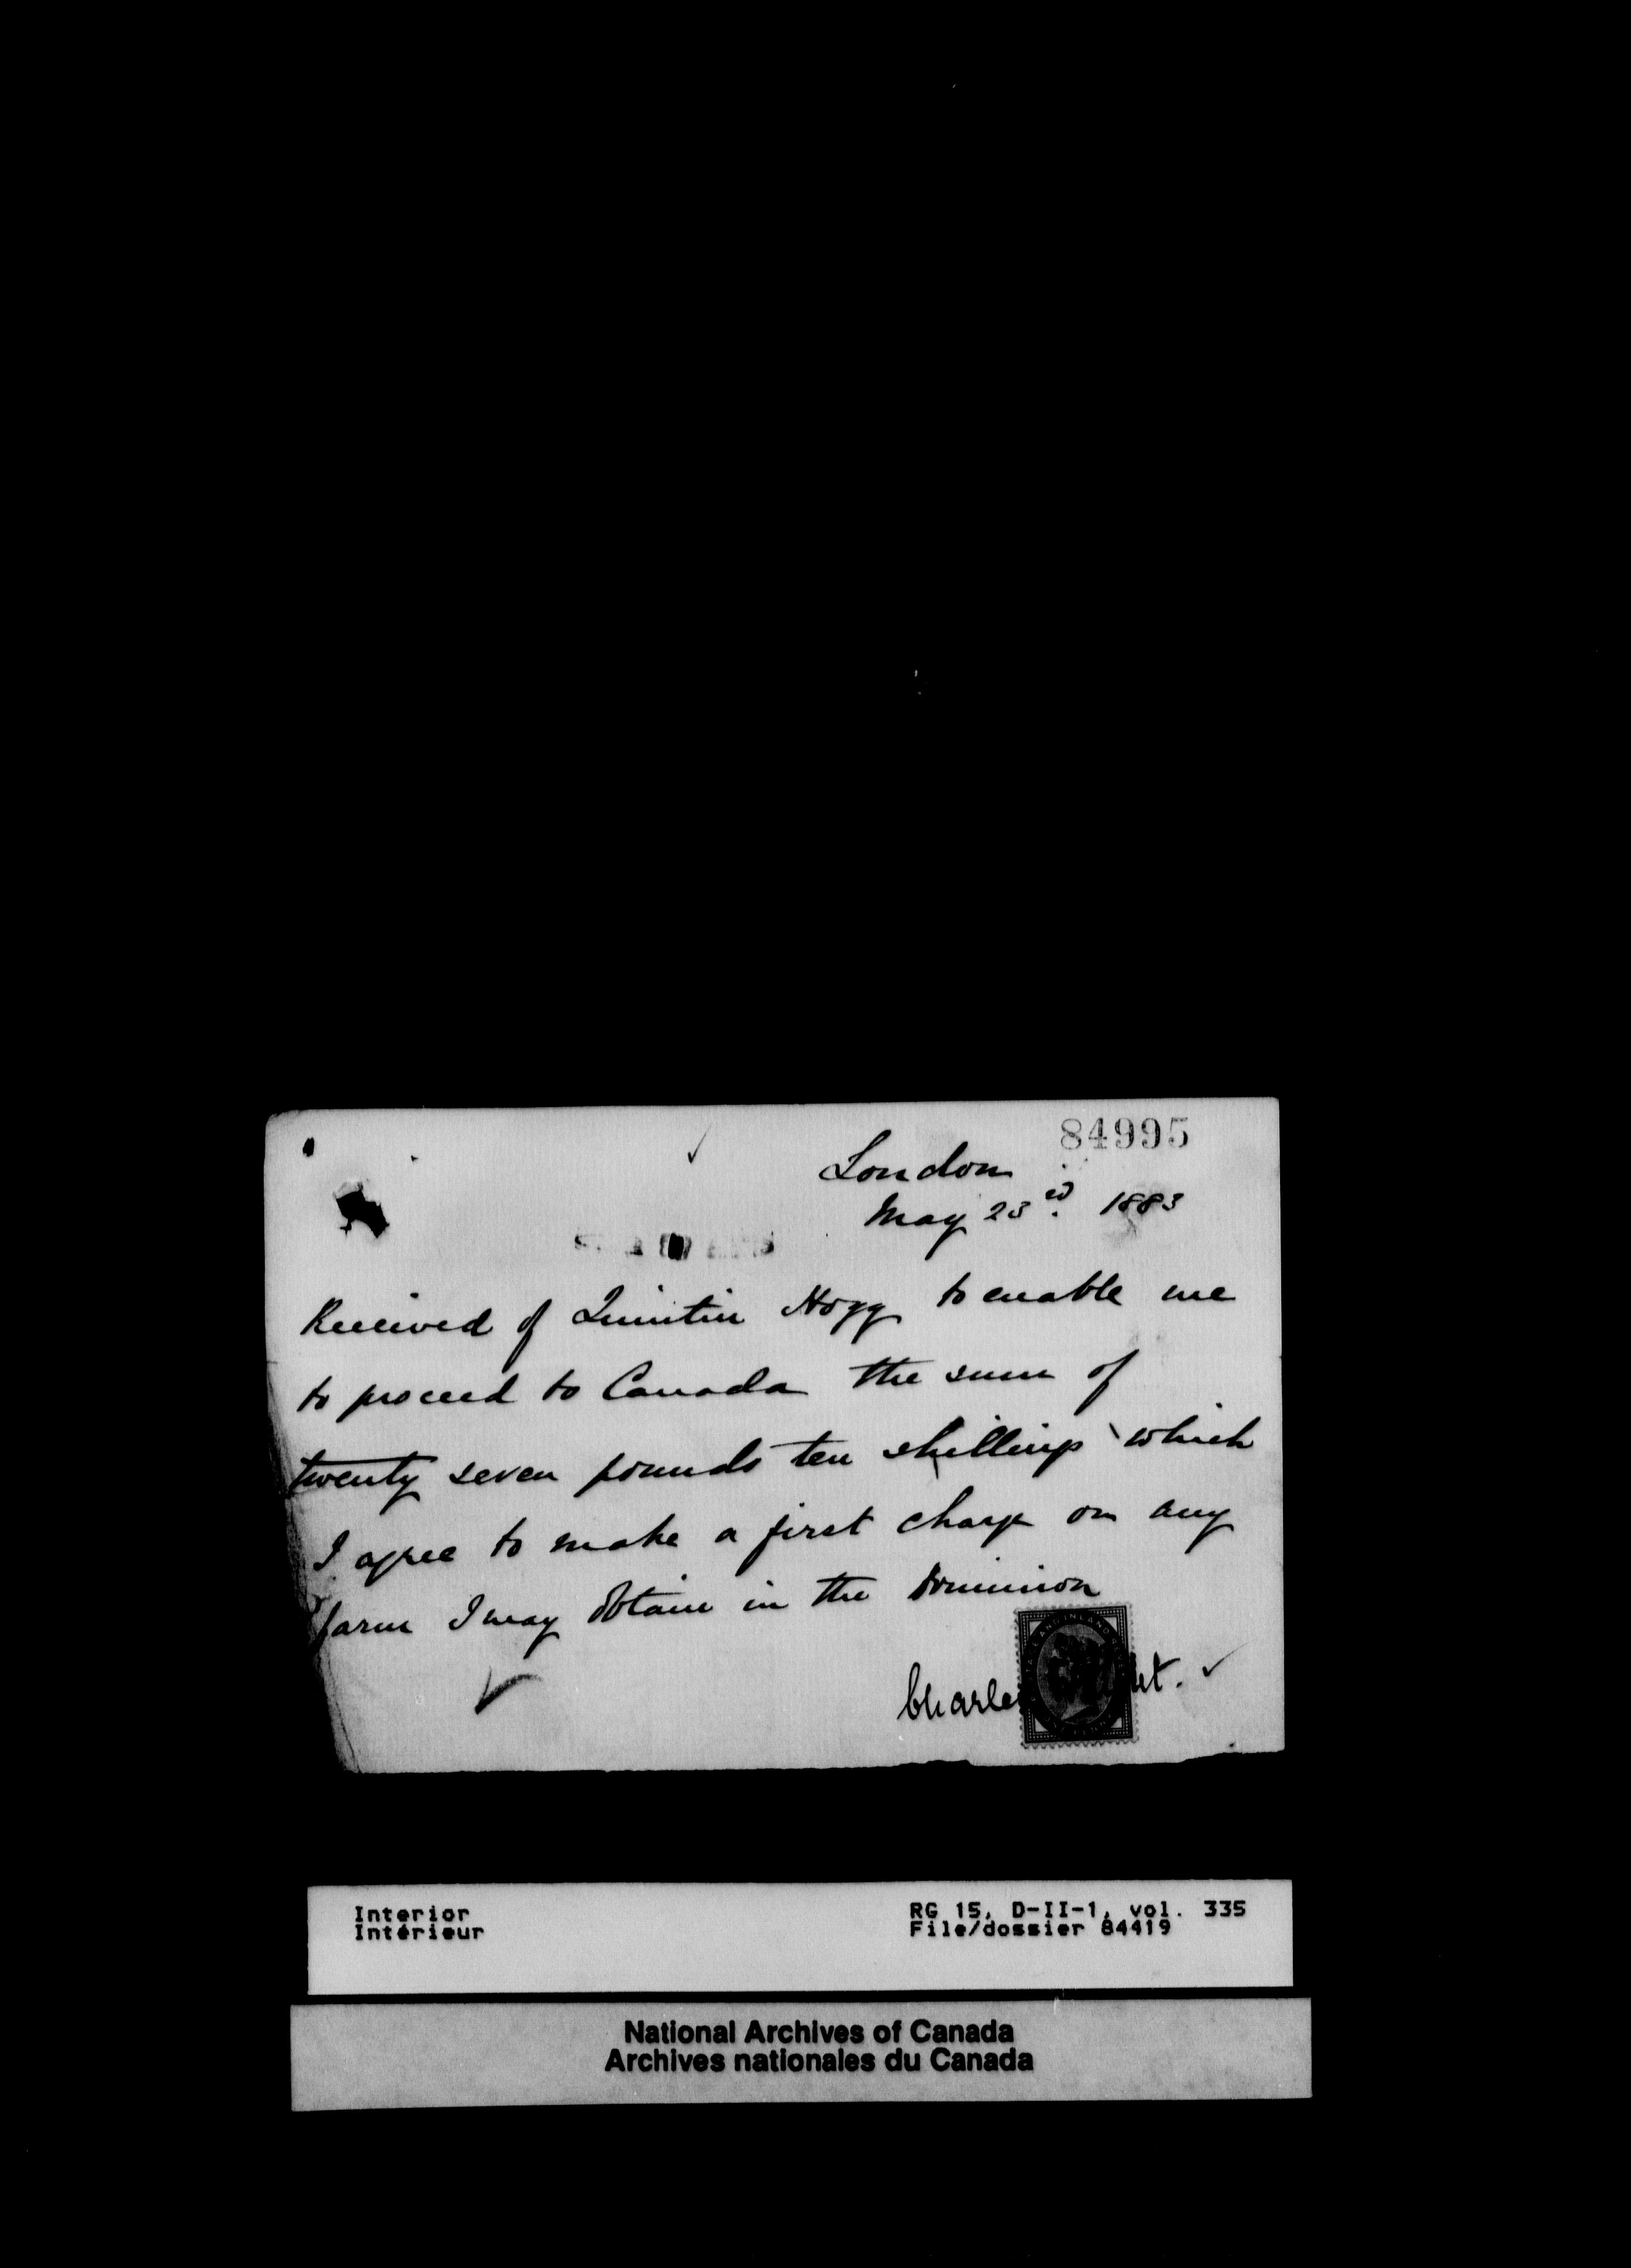 84995
London
May 23rd. 1883
Received of Quintin Hogg to enable me
to proceed to Canada the sum of
twenty seven pounds ten shillings which
I agree to make a first charge on any
farm I may obtain in the Dominion
Charles
Interior
Intérieur
RG 15, D-II-1, vol. 335
File/dossier 84419
National Archives of Canada
Archives nationales du Canada